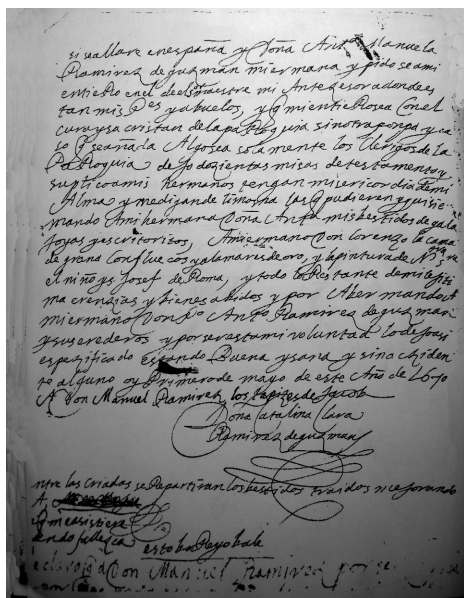 si se allare en españa y Doña Ant.ª Manuela
Ramirez de guzmán mi ermana y pido se a mi
entierro en el del maestre mi Antesesor adonde es
tan mis P.es y abuelos, y q mi entierro sea con el
cura y sacristan de la parroquia sin otra ponpa y ca
so q se aaria Algo sea solamente los Clerigos de la
Parroquia dejo dozientas misas de testamento y
suplico a mis hermanos tengan misericordia de mi
Alma y me digan de limosna las q pudieren y quisie
mando A mi hermana Doña Ant.ª mis bestidos de gala
joyas y escritorios, A mi ermano Don Lorenzo la cama
de grana con fluecos y alamares de oro, y la pintura de N.
el niño y s Josef de Roma, y todo lo Restante de mi lejiti
ma erenzias y bienes abidos y por Aber mando A
mi ermano Don P.º Ant.º Ramirez de guzman
y sus erederos y por ser esta mi voluntad lo dejo asi
espezificado Estando Buena y sana y sin acziden
te alguno oy Primero de mayo de este Año de 1670
A Don Manuel Ramirez los tapizes de Jacob
Doña Catalina Clara
Ramirez de guzman
ntre las criadas se Repartiran los bestidos traidos
A
q me asistiere
endo fallezca esto bo Reyo bale
Don Manuel Ramirez por